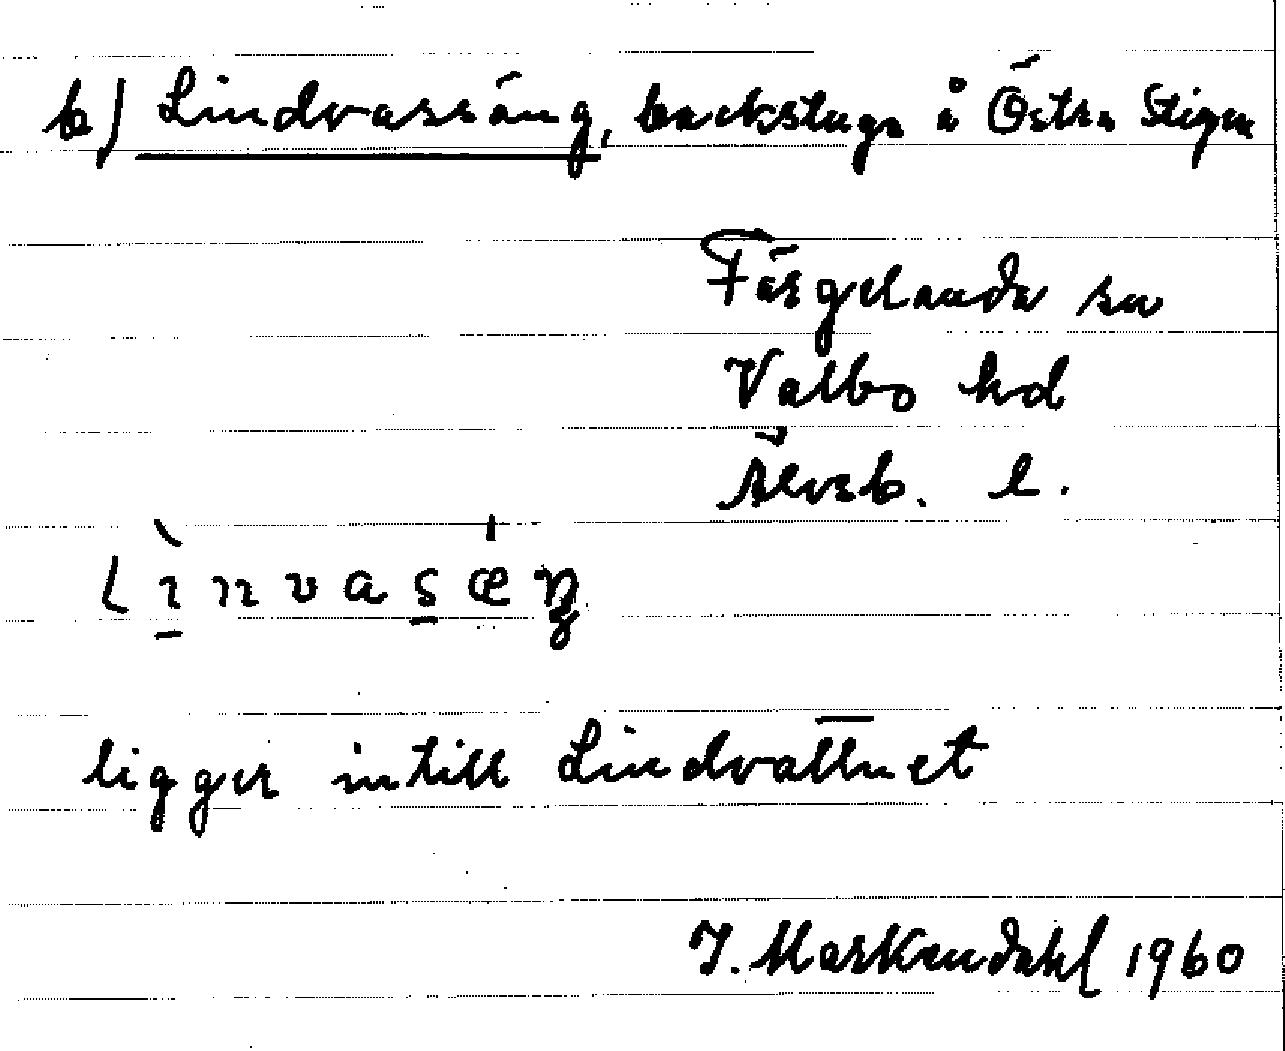 b) Lindvassäng, backstuga å Östra Stigen
Färgelanda sn
Valbo hd
Älvsb. l.
lìnvasæŋ
ligger intill Lindvattnet
I. Markendahl 1960